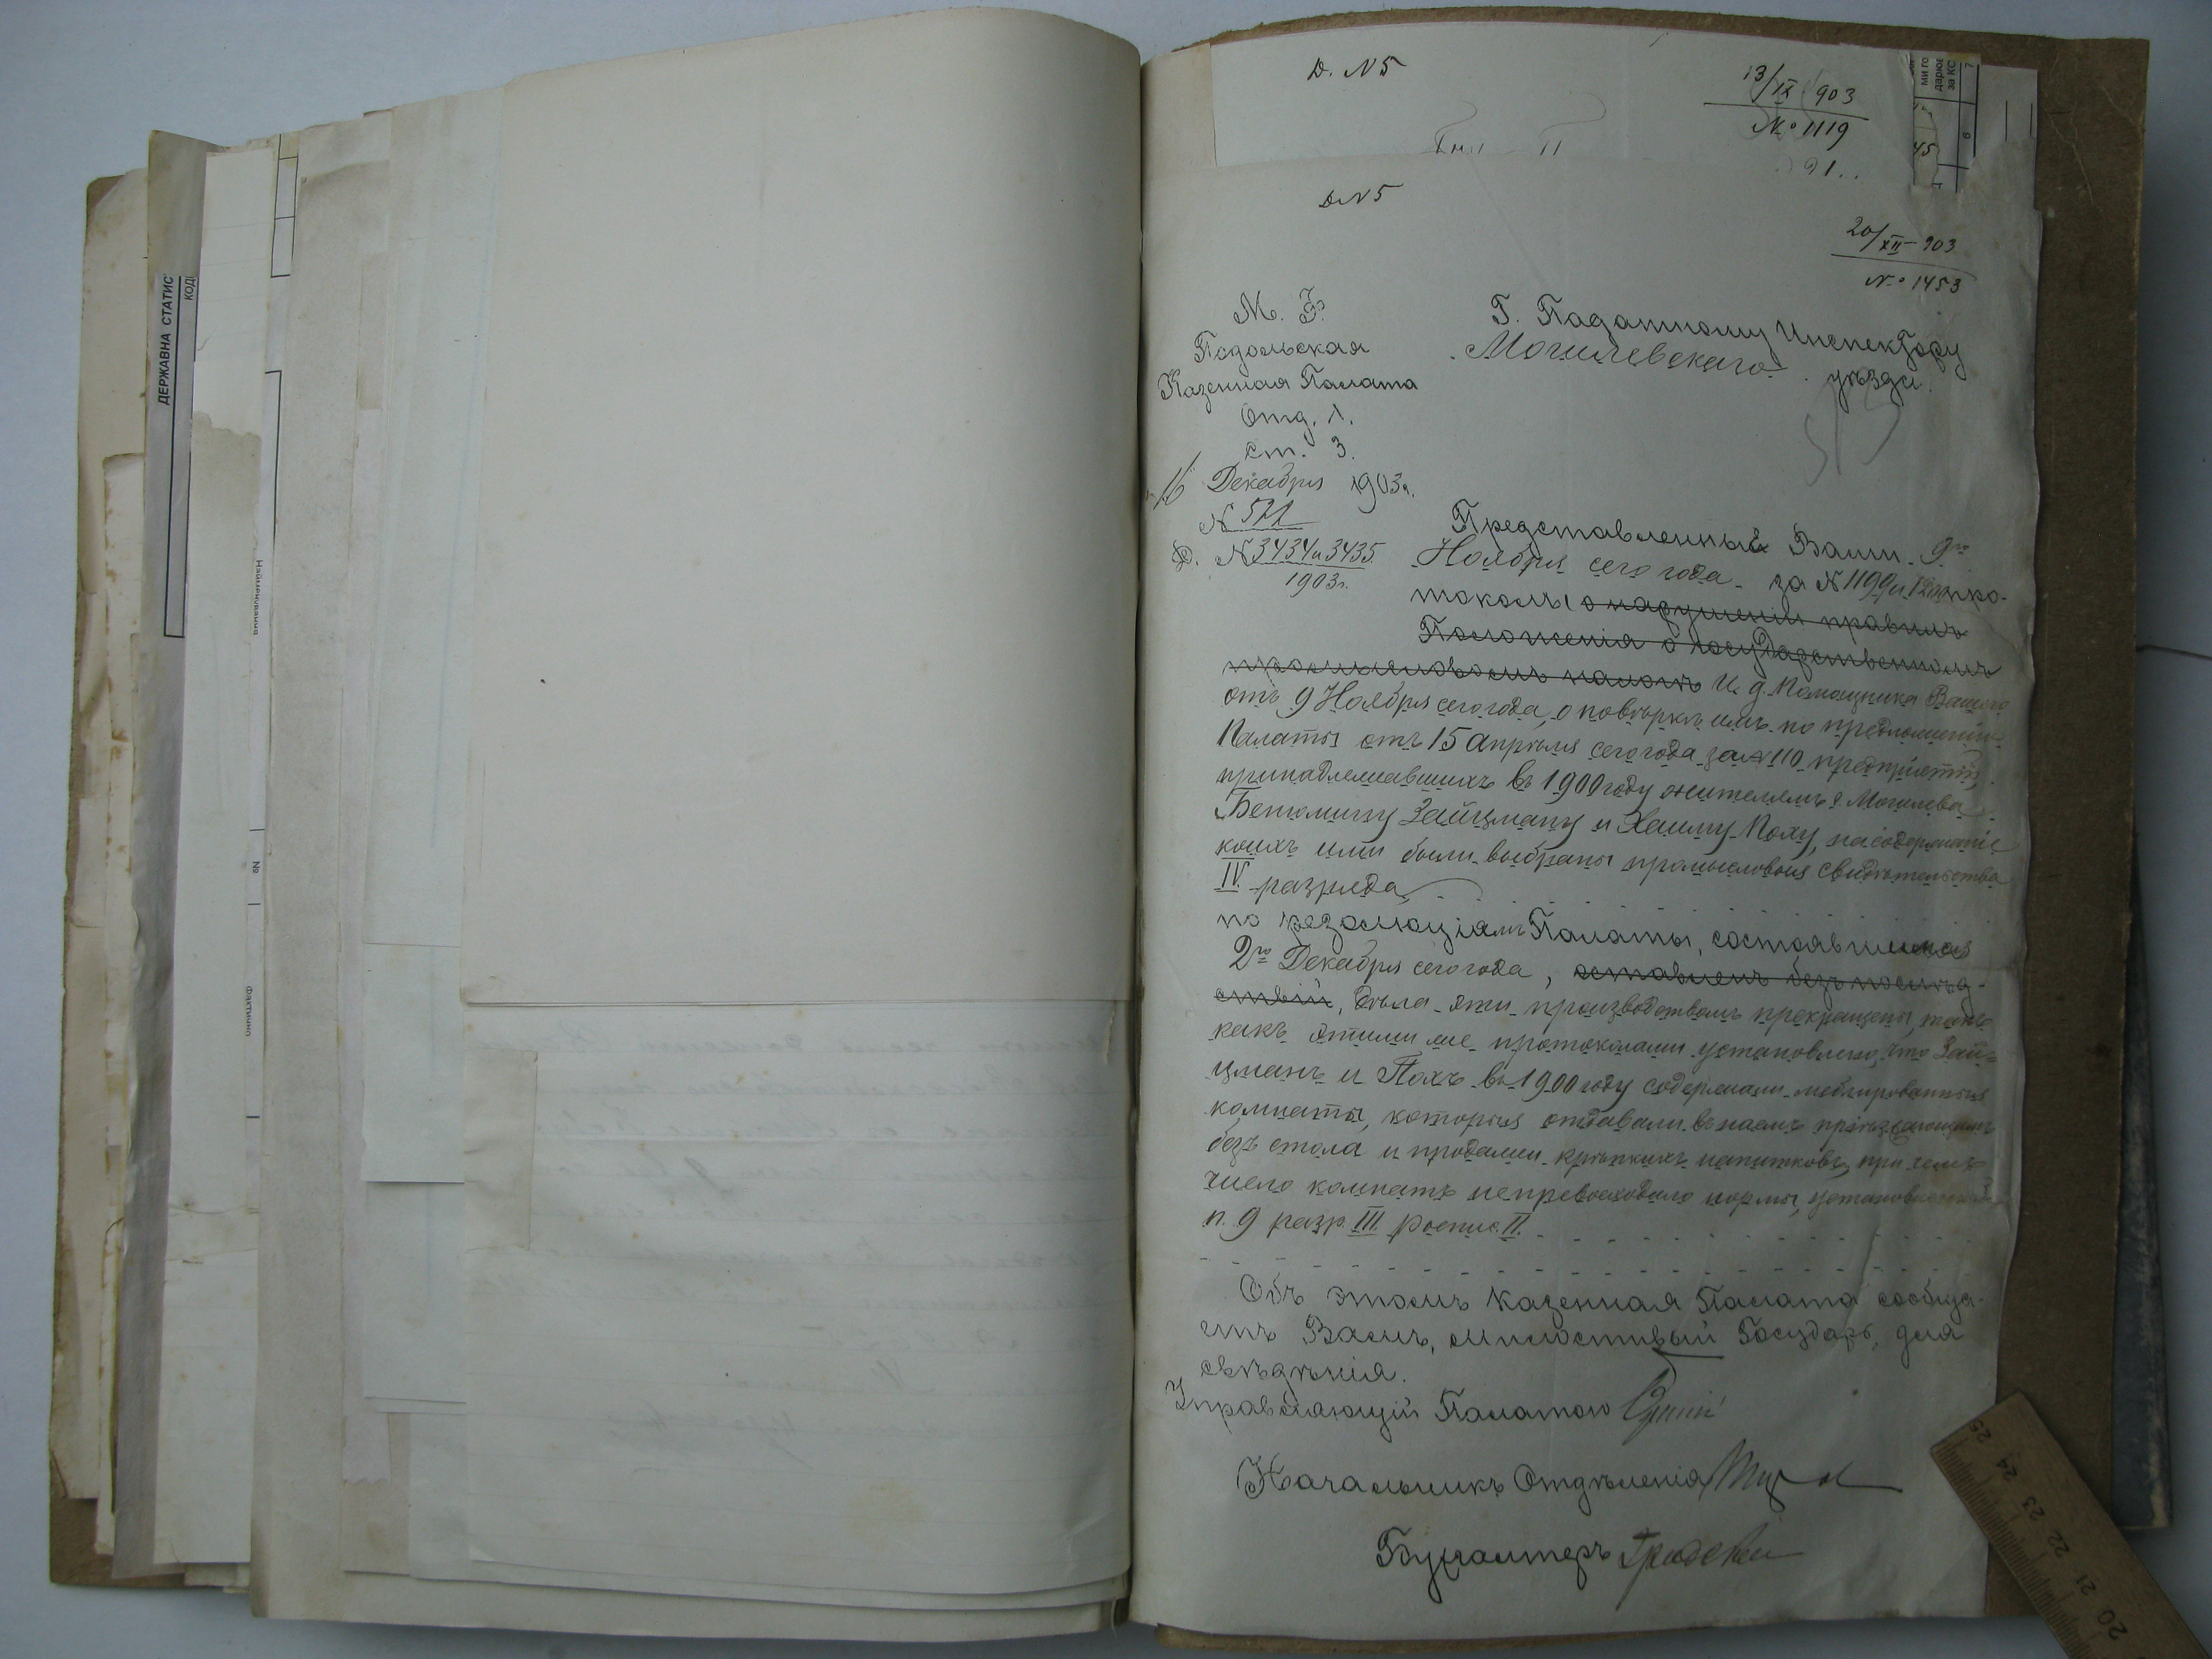 Д. N 5
13/IX 903
№ 1119
91..
ДN5
20/XII-903
№ 1453
М. Ф.
Подольская
Казенная Палата
Отд. 1.
ст. 3.
16 Декабря 1903г.
N 511
Д. N 3434 и 3435
1903г.
Г. Податному Инспектору
Могилевскаго уѣзда.
Представленные Вами 9го
Ноября сего года за N 1199 и про-
токолы о нарушеніи правилъ
Положенія о государственномъ
промысловомъ налогѣ И. д. Помощника Вашего
отъ 9 Ноября сего года, о повѣркѣ имъ по предложенію
Палаты отъ 15 Апрѣля сего года за N 110 предпріятій,
принадлежавшихъ въ 1900 году жителямъ г. Могилева
Беньомину Зайцману и Хаиму Полу, на содержаніе
коихъ ими были выбраны промысловыя свидѣтельства
IV разряда,
по резолюціямъ Палаты, состоявшимся
2го Декабря сего года, оставленъ безъ послѣд-
ствій, дѣла эти производствомъ прекращены, такъ
какъ этими же протоколами установлено, что Зай-
цманъ и Полъ въ 1900 году содержали меблированныя
комнаты, которыя отдавали въ наемъ пріѣзжающимъ
безъ стола и продажи крѣпкихъ напитковъ, при чемъ
число комнатъ не превосходило нормы, установленной
п. 9 разр. III роспис. II.
Объ этомъ Казенная Палата сообща-
етъ Вамъ, Милостивый Государь, для
свѣдѣнія.
Управляющій Палатою
Начальникъ Отдѣленія
Бухгалтеръ
ДЕРЖАВНА СТАТИС
КОД
Найменування
№
Фактично
ми го
дарюв
за КС
7
6
45
25 24 23 22 21 20